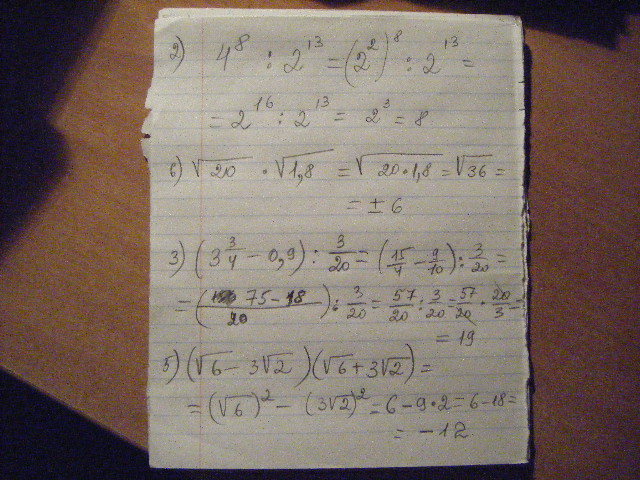 2) 4⁸ : 2¹³ = (2²)⁸ : 2¹³ =
= 2¹⁶ : 2¹³ = 2³ = 8
6) √20 · √1,8 = √20·1,8 = √36 =
= ± 6
3) (3 3/4 − 0,9) : 3/20 = (15/4 − 9/10) : 3/20 =
= (75 − 18 / 20) : 3/20 = 57/20 : 3/20 = 57/20 · 20/3 =
= 19
5) (√6 − 3√2)(√6 + 3√2) =
= (√6)² − (3√2)² = 6 − 9·2 = 6 − 18 =
= −12